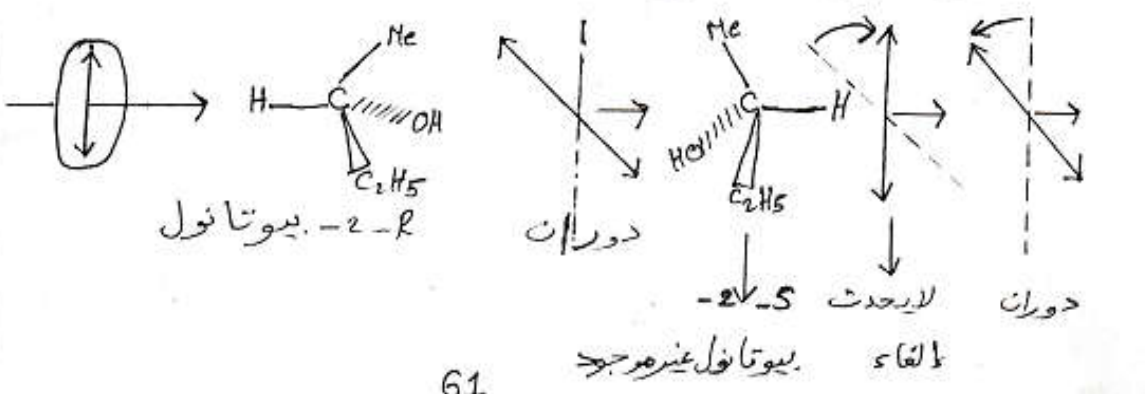 Me
H C OH
C2H5
R-2-بيوتانول
دوران
Me
HO C H
C2H5
S-2-
بيوتانول غير موجود
لا يحدث
إلغاء
دوران
61